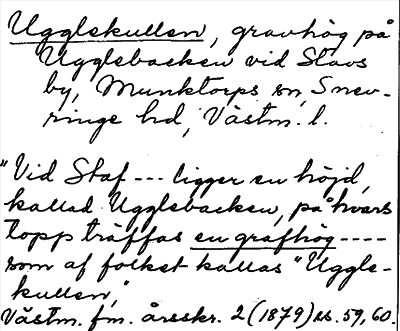 Ugglekullen, gravhög på
Ugglebacken vid Stavs
by, Munktorps sn, Snev-
ringe hd, Västm. l.
"Vid Staf --- ligger en höjd,
kallad Ugglebacken, på hvars
topp träffas en grafhög ----
som af folket kallas "Uggle-
kullen,"
Västm. fm. årsskr. 2 (1879) ss. 59, 60.